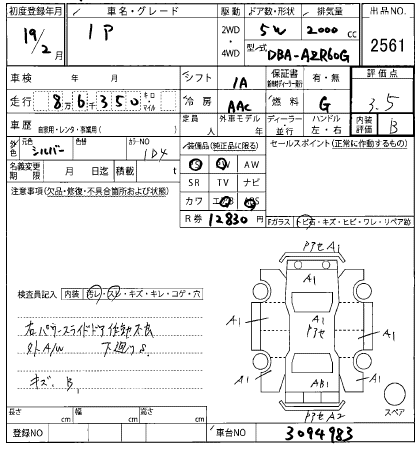 初度登録年月 車名・グレード 駆動 ドア数・形状 排気量 出品NO.
19/2月 IP 2WD・4WD 5W 2000 cc 2561
型式 DBA-AZR60G
車検 年 月 シフト IA 保証書 有・無 評価点
走行 8万6千350 キロ・マイル 冷房 AAC 燃料 G 3.5
車歴 自家用・レンタ・事業用( ) 定員 人 外車モデル 年 ディーラー・並行 ハンドル 左・右 内装評価 B
外色 元色 シルバー 色替 カラーNO 1D4 装備品(純正品に限る) セールスポイント(正常に動作するもの)
名義変更期限 月 日迄 積載 t PS PW AW
注意事項(欠品・修復・不具合箇所および状態) SR TV ナビ
カワ エアB ABS
R券 12830円
Fガラス トビ石・キズ・ヒビ・ワレ・リペア跡
検査員記入 内装 汚レ・スレ・キズ・キレ・コゲ・穴
右パワースライドドア作動不良
外A/W 下廻りS
キズ、B1
アクセA1
A1
A1 A1 アクセ A1 A1
A1 AB1 A1
アクセA2
スペア
長さ cm 幅 cm 高さ cm
登録NO 車台NO 3094983